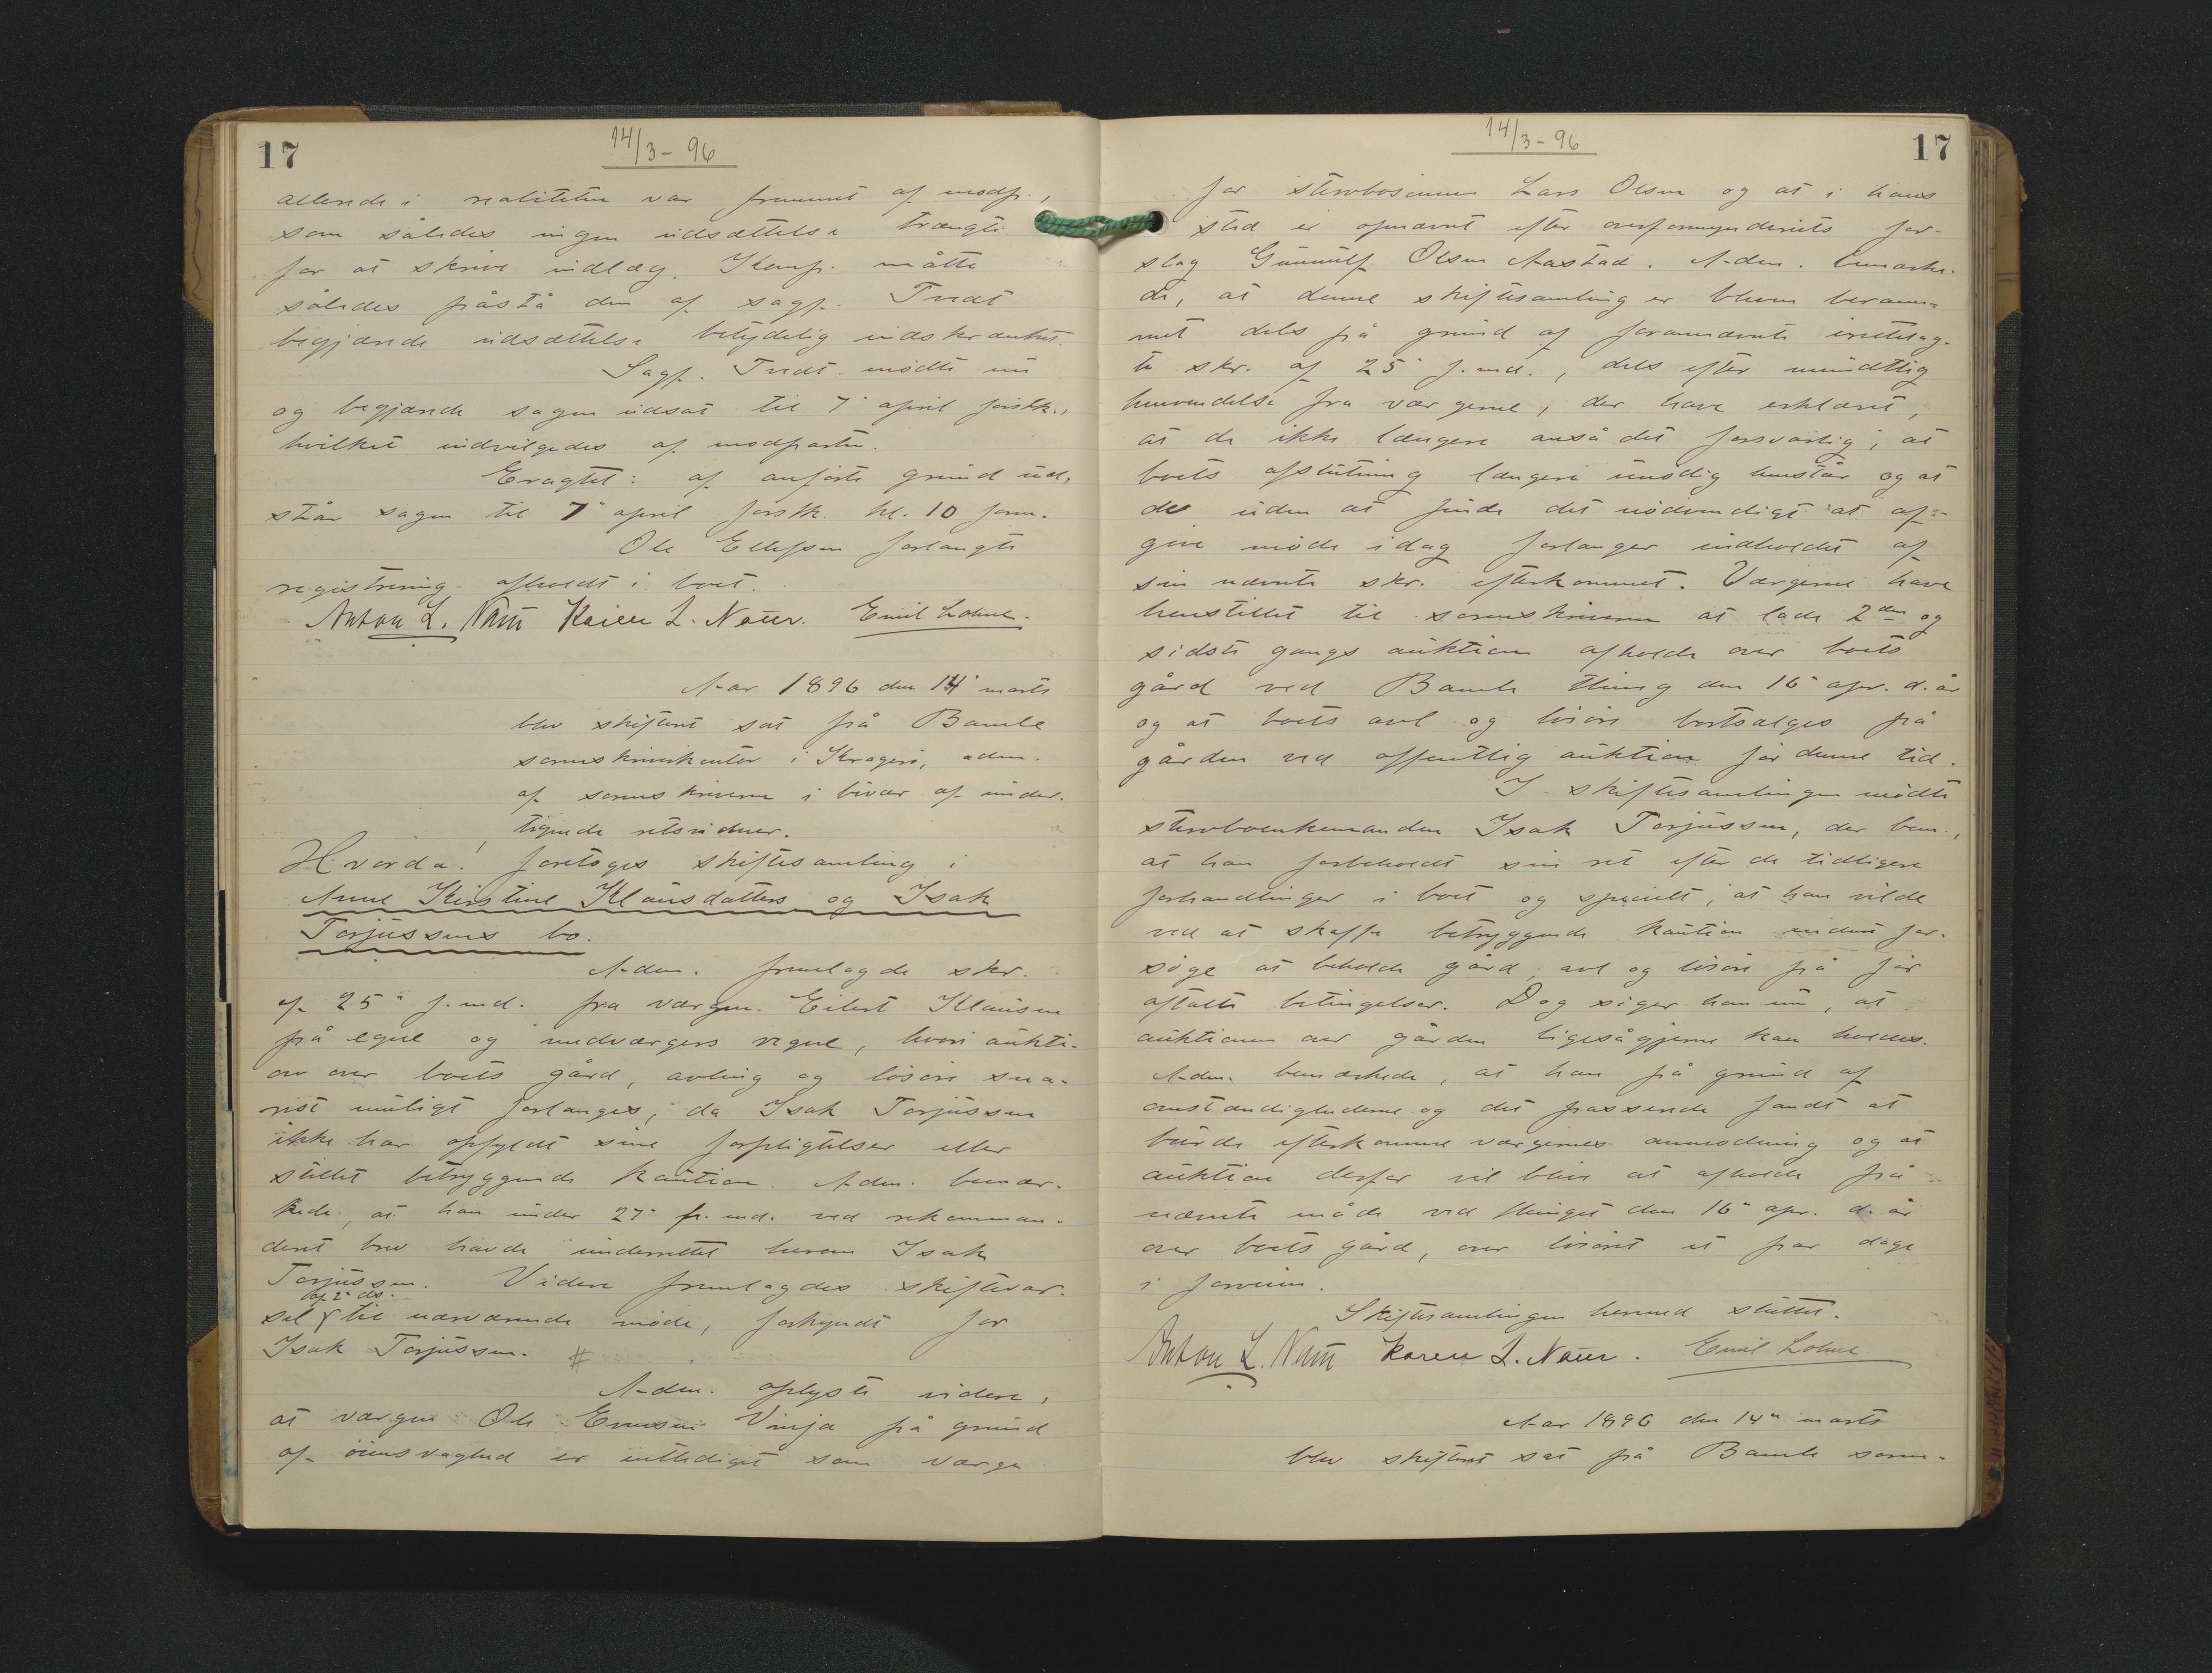 17
14/3-96
allerede i realiteten var fremmet af modp.,
som således ingen udsættelse trængte
for at skrive indlæg. Komp. måtte
således påstå den af sagf. Tvedt
begjærede udsættelse betydelig indskrænket.
Sagf. Tvedt mødte nu
og begjærede sagen udsat til 7de april førstk.,
hvilket indvilgedes af modparten.
Eragtet: af anførte grund ud-
står sagen til 7de april førstk. kl. 10 form.
Ole Ellefsen forlangte
registrering afholdt i boet.
Anton L. Næss Karen L. Næss. Emil Lohne.
Aar 1896 den 14de marts
blev skifteret sat på Bamle
sorenskriverkontor i Kragerø, adm.
af sorenskriveren i bivær af under-
tegnede retsvidner.
Hvorda! foretoges skiftesamling i
Anne Kirstine Klausdatters og Isak
Torjussens bo.
Adm. fremlagde skr.
af 25de f. md. fra værgen Eilert Klausen
på egne og medværgers vegne, hvori aukti-
on over boets gård, avling og løsøre sna-
rest muligt forlanges, da Isak Torjussen
ikke har opfyldt sine forpligtelser eller
stillet betryggende kaution. Adm. bemær-
kede, at han under 27de f. md. ved rekomman-
deret brev havde underrettet herom Isak
Torjussen. Videre fremlagdes skiftevar-
af 2de ds.
sel til nærværende møde, forkyndt for
Isak Torjussen. #
Adm. oplyste videre,
at værgen Ole Evensen Vinja på grund
af øiensvaghed er entlediget som værge
14/3-96
17
for sterbosønnen Lars Olsen og at i hans
sted er opnævnt efter overformynderiets for-
slag Gunnulf Olsen Aastad. Adm. bemærke-
de, at denne skiftesamling er bleven beram-
met dels på grund af forannævnte irettelag-
te skr. af 25de f. md., dels efter mundtlig
henvendelse fra værgerne, der have erklæret,
at de ikke længere anså det forsvarlig, at
boets afslutning længere unødig henstår og at
de uden at finde det nødvendigt at af-
give møde idag forlanger indholdet af
sin nævnte skr. efterkommet. Værgerne have
henstillet til sorenskriveren at lade 2den og
sidste gangs auktion afholde over boets
gård ved Bamle thing den 16de apr. d. år
og at boets avl og løsøre bortsælges på
gården ved offentlig auktion før denne tid.
I skiftesamlingen mødte
sterboenkemanden Isak Torjussen, der bem.,
at han forbeholdt sin ret efter de tidligere
forhandlinger i boet og specielt, at han vilde
ved at skaffe betryggende kaution inden for-
søge at beholde gård, avl og løsøre på før
aftalte betingelser. Dog siger han nu, at
auktionen over gården ligesågjerne kan holdes.
Adm. bemærkede, at han på grund af
omstændighederne og det passende fandt at
burde efterkomme værgernes anmodning og at
auktion derfor vil blive at afholde på
nævnte måde ved thinget den 16de apr. d. år
over boets gård, over løsøret et par dage
i forveien.
Skiftesamlingen hermed sluttet.
Anton L. Næss Karen L. Næss. Emil Lohne
Aar 1896 den 14de marts
blev skifteret sat på Bamle soren-